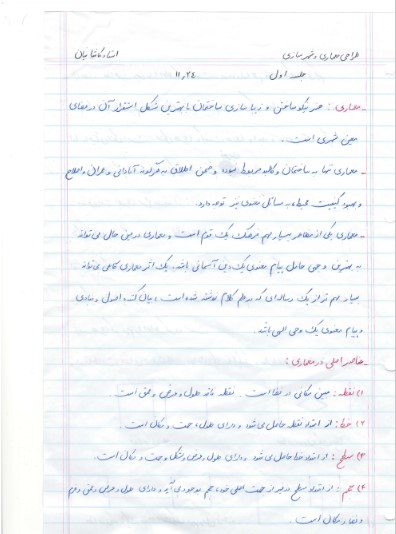 طراحی معماری و شهرسازی استاد کاخانیان
جلسه اول ۱۱,۲۴
ـ معماری : هنر نیکو ساختن و زیبا سازی ساختمان با بهترین شکل استقرار آن در فضای
معین شهری است .
ـ معماری تنها به ساختمان و کالبد مربوط نبوده و ضمن اطلاق به هرگونه آبادانی و عمران و اصلاح
و بهبود کیفیت محیط، به مسائل معنوی نیز توجه دارد.
ـ معماری یکی از مظاهر بسیار مهم فرهنگ یک قوم است و معماری در عین حال می تواند
به بهترین وجهی حامل پیام معنوی یک دین آسمانی باشد. یک اثر معماری گاهی می تواند
بسیار مهم تر از یک رساله ای که در علم کلام نوشته شده است ، بیان کننده اصول و مبادی
و پیام معنوی یک وحی الهی باشد.
عناصر اصلی در معماری :
۱) نقطه : مبین مکانی در فضا است . نقطه فاقد طول و عرض و عمق است .
۲) خط : از امتداد نقطه حاصل می شود و دارای طول ، جهت و مکان است .
۳) سطح : از امتداد خط حاصل می شود و دارای طول و عرض و شکل و جهت و مکان است.
۴) حجم : از امتداد سطح در غیر از جهت اصلی خود، حجم بوجود می آید و دارای طول و عرض و عمق و فرم
و فضا و مکان است .